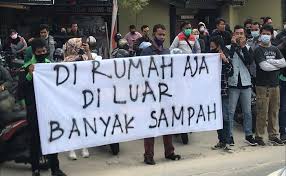 DI RUMAH AJA
DI LUAR
BANYAK SAMPAH